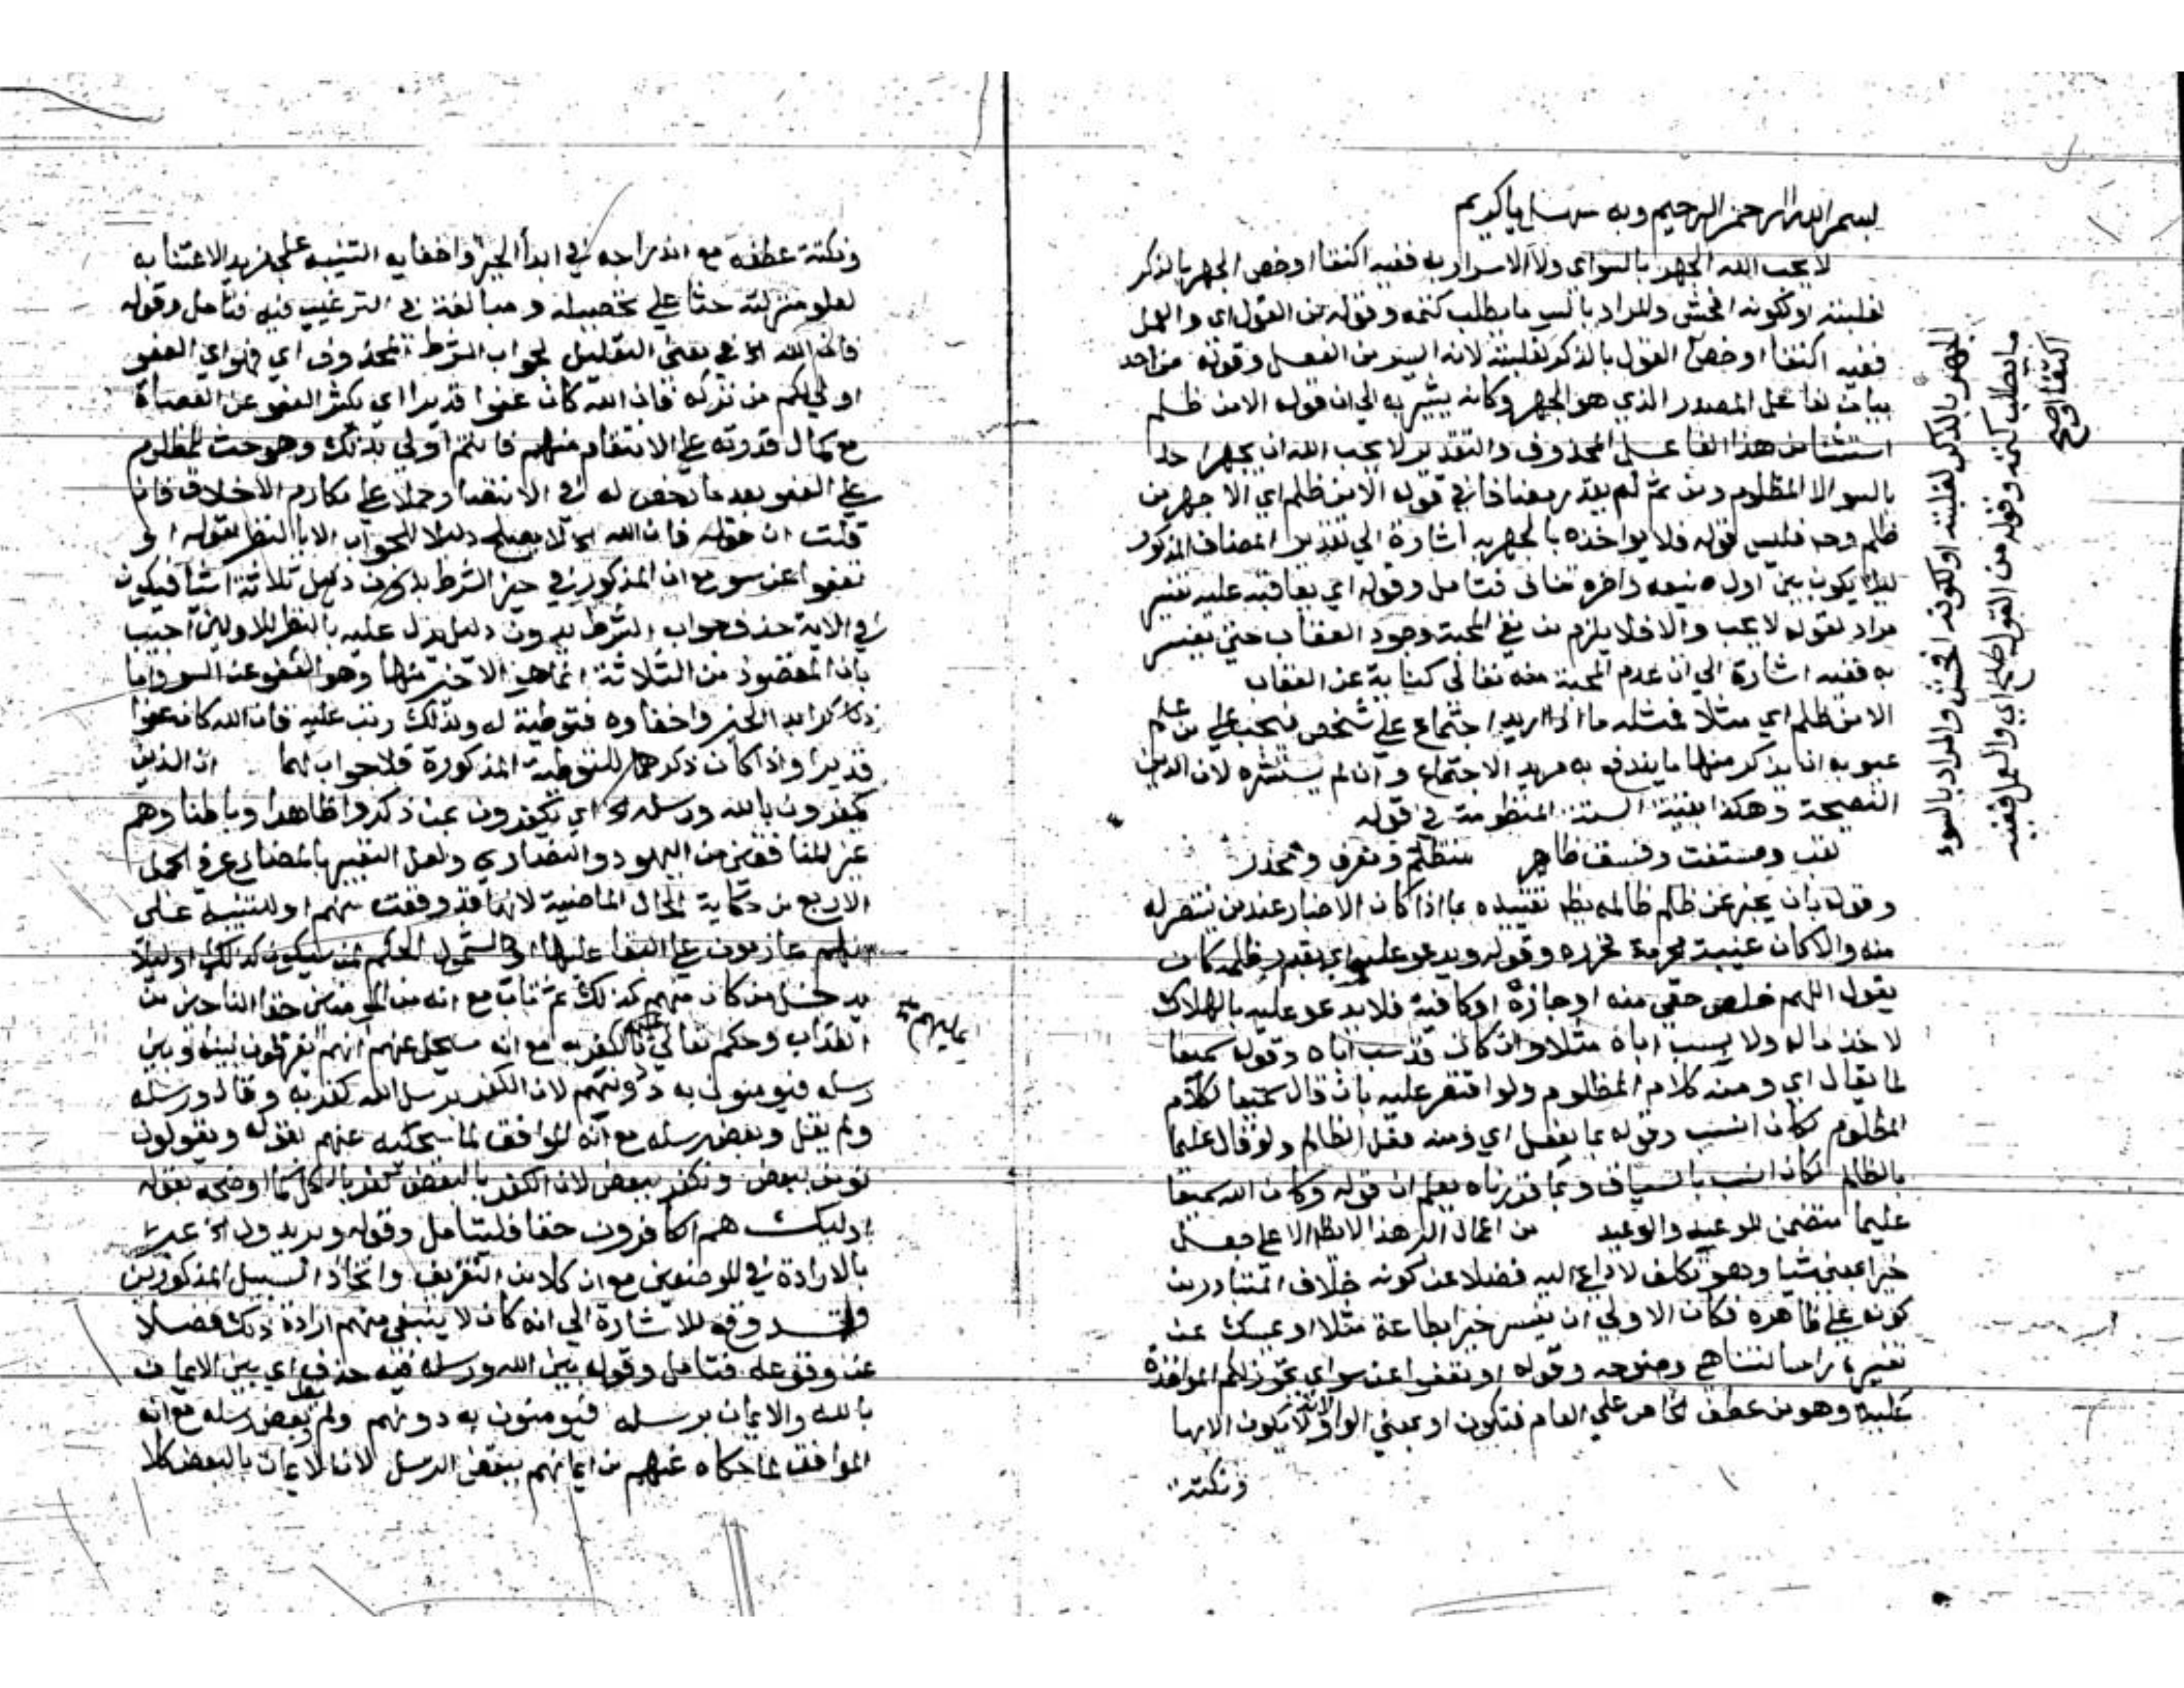 بسم الله الرحمن الرحيم وبه يا كريم
لا يحب الله الجهر بالسواي ولا الاسرار به ففيه اكتفا او خص الجهر بالذكر
لغلبته او لكونه افحش والمراد بالسو ما يطلب كتمه وقوله من القول اي والعمل
ففيه اكتفا او خص القول بالذكر لغلبته لانه ايسر من الفعل وقوله من احد
بيان لفاعل المصدر الذي هو الجهر وكانه يشير به الي ان قوله الا من ظلم
استثنا من هذا الفاعل المحذوف والتقدير لا يحب الله ان يجهر احد
بالسو الا المظلوم ومن ثم لم يقدر مضافا في قوله الا من ظلم اي الا جهر من
ظلم وحه فليس قوله فلا يواخذه بالجهر به اشارة الي تقدير المضاف المذكور
ليلا يكون بين اول واخره تنافي فتامل وقوله اي يعاقبه عليه تفسير
مراد لقوله لا يحب والا فلا يلزم من نفي المحبة وجود العقاب حتي يفسر
به ففيه اشارة الي ان عدم المحبة منه تعالي كناية عن العقاب
الا من ظلم اي مثلا فمثله ما اذا اريد اجتماع علي شخص فيجب علي من علم
عيوبه ان يذكر منها ما يندفع به مريد الاجتماع وان لم يستشره لان الدين
النصيحة وهكذا بقية الستة المنظومة في قوله
لقب ومستفت وفسق ظاهر متظلم ومعرف ومحذر
وقوله بان يخبر عن ظلم ظالمه تقييده بما اذا كان الاخبار عند من ينتصر له
منه والا كان غيبة محرمة وقوله ويدعو عليه اي بقدر ظلمه كان
يقول اللهم خلص حقي منه او جازه او كافيه فلا يدعو عليه بالهلاك
لاخذ ماله ولا يسب اباه مثلا وان كان قد سب اباه وقوله سميعا
لما يقال اي ومنه كلام المظلوم ولو اقتصر عليه بان قال سميعا لكلام
المظلوم لكان انسب وقوله بما يفعل اي ومنه فعل الظالم ولو قال عليما
بالظالم لكان انسب بالسياق وبما قررناه يعلم ان قوله وكان الله سميعا
عليما متضمن للوعد والوعيد من اعمال البر هذا الا علي جعل
خيرا بمعني شيا وهو تكلف لا داعي اليه فضلا عن كونه خلاف المتبادر من
كونه علي ظاهره فكان الاولي ان يفسر خيرا بطاعة مثلا او يمسك عن
تفسيره وقوله او تعفوا عن سواي المواخذة
عليه وهو من عطف الخاص علي العام فتكون او بمعني الواو لا يكون الا بها
ونكتة
الجهر بالذكر لغلبته او لكونه افحش والمراد بالسوء
ما يطلب كتمه وقوله من القول اي والعمل ففيه
اكتفا او صح
ونكتة عطفه مع اندراجه في ابدا الخير واخفايه التنبيه علي مزيد الاعتنا به
لعلو منزلته حثا علي تحصيله ومبالغة في الترغيب فيه فتامل وقوله
فان الله الخ في معني التعليل لجواب الشرط المحذوف اي فهو اي العفو
اولي لكم من تركه فان الله كان عفوا قديرا اي يكثر العفو عن العصاة
مع كمال قدرته علي الانتقام منهم فانتم اولي بذلك وهو حث للمظلوم
علي العفو بعد ما رخص له في الانتصار حملا علي مكارم الاخلاق فان
قلت ان قوله فان الله الخ لا يصلح دليلا للجواب الا بالنظر لقوله او
تعفوا عن سو مع ان المذكور في حيز الشرط ثلاثة اشيا فيكون
في الاية حذف جواب الشرط بدون دليل يدل عليه بالنظر للاولين اجيب
بان المقصود من الثلاثة انما هو الاخير منها وهو العفو عن السو واما
ذكر ابدا الخير واخفاوه فتوطية له ولذلك رتب عليه فان الله كان عفوا
قديرا واذا كان ذكرهما للتوطية المذكورة فلا جواب لهما ان الذين
يكفرون بالله ورسله الخ اي يكفرون بمن ذكروا ظاهرا وباطنا وهم
غير المنافقين من اليهود والنصاري ولعل التعبير بالمضارع في الجمل
الاربع من حكاية الحال الماضية لانها قد وقعت منهم او للتنبيه علي
انهم عازمون علي البقا عليها او لشمول الحكم لمن سيكون كذلك او ليلا
يدخل من كان منهم كذلك ثم تاب مع انه من المومنين حقا الناجين من
العذاب وحكم تعالي عليهم بالكفر به مع انه سيحكي عنهم انهم يفرقون بينه وبين
ايمانهم
رسله فيومنون به دونهم لان الكفر برسل الله كفر به وقال ورسله
ولم يقل وبعض رسله مع انه الموافق لما سيحكيه عنهم بقوله ويقولون
نومن ببعض ونكفر ببعض لان الكفر بالبعض كفر بالكل كما اوضحه بقوله
اوليك هم الكافرون حقا فليتامل وقوله ويريدون الخ عبر
بالارادة في الموضعين مع ان كلا من التفريق واتخاذ السبيل المذكورين
قد وقع للاشارة الي انه كان لا ينبغي منهم ارادة ذلك فضلا
عن وقوعه فتامل وقوله بين الله ورسله فيه حذف اي بين الايمان
بالله والايمان برسله فيومنون به دونهم ولم يقل وبعض رسله مع انه
الموافق لما حكاه عنهم من ايمانهم ببعض الرسل لان الايمان بالبعض كلا